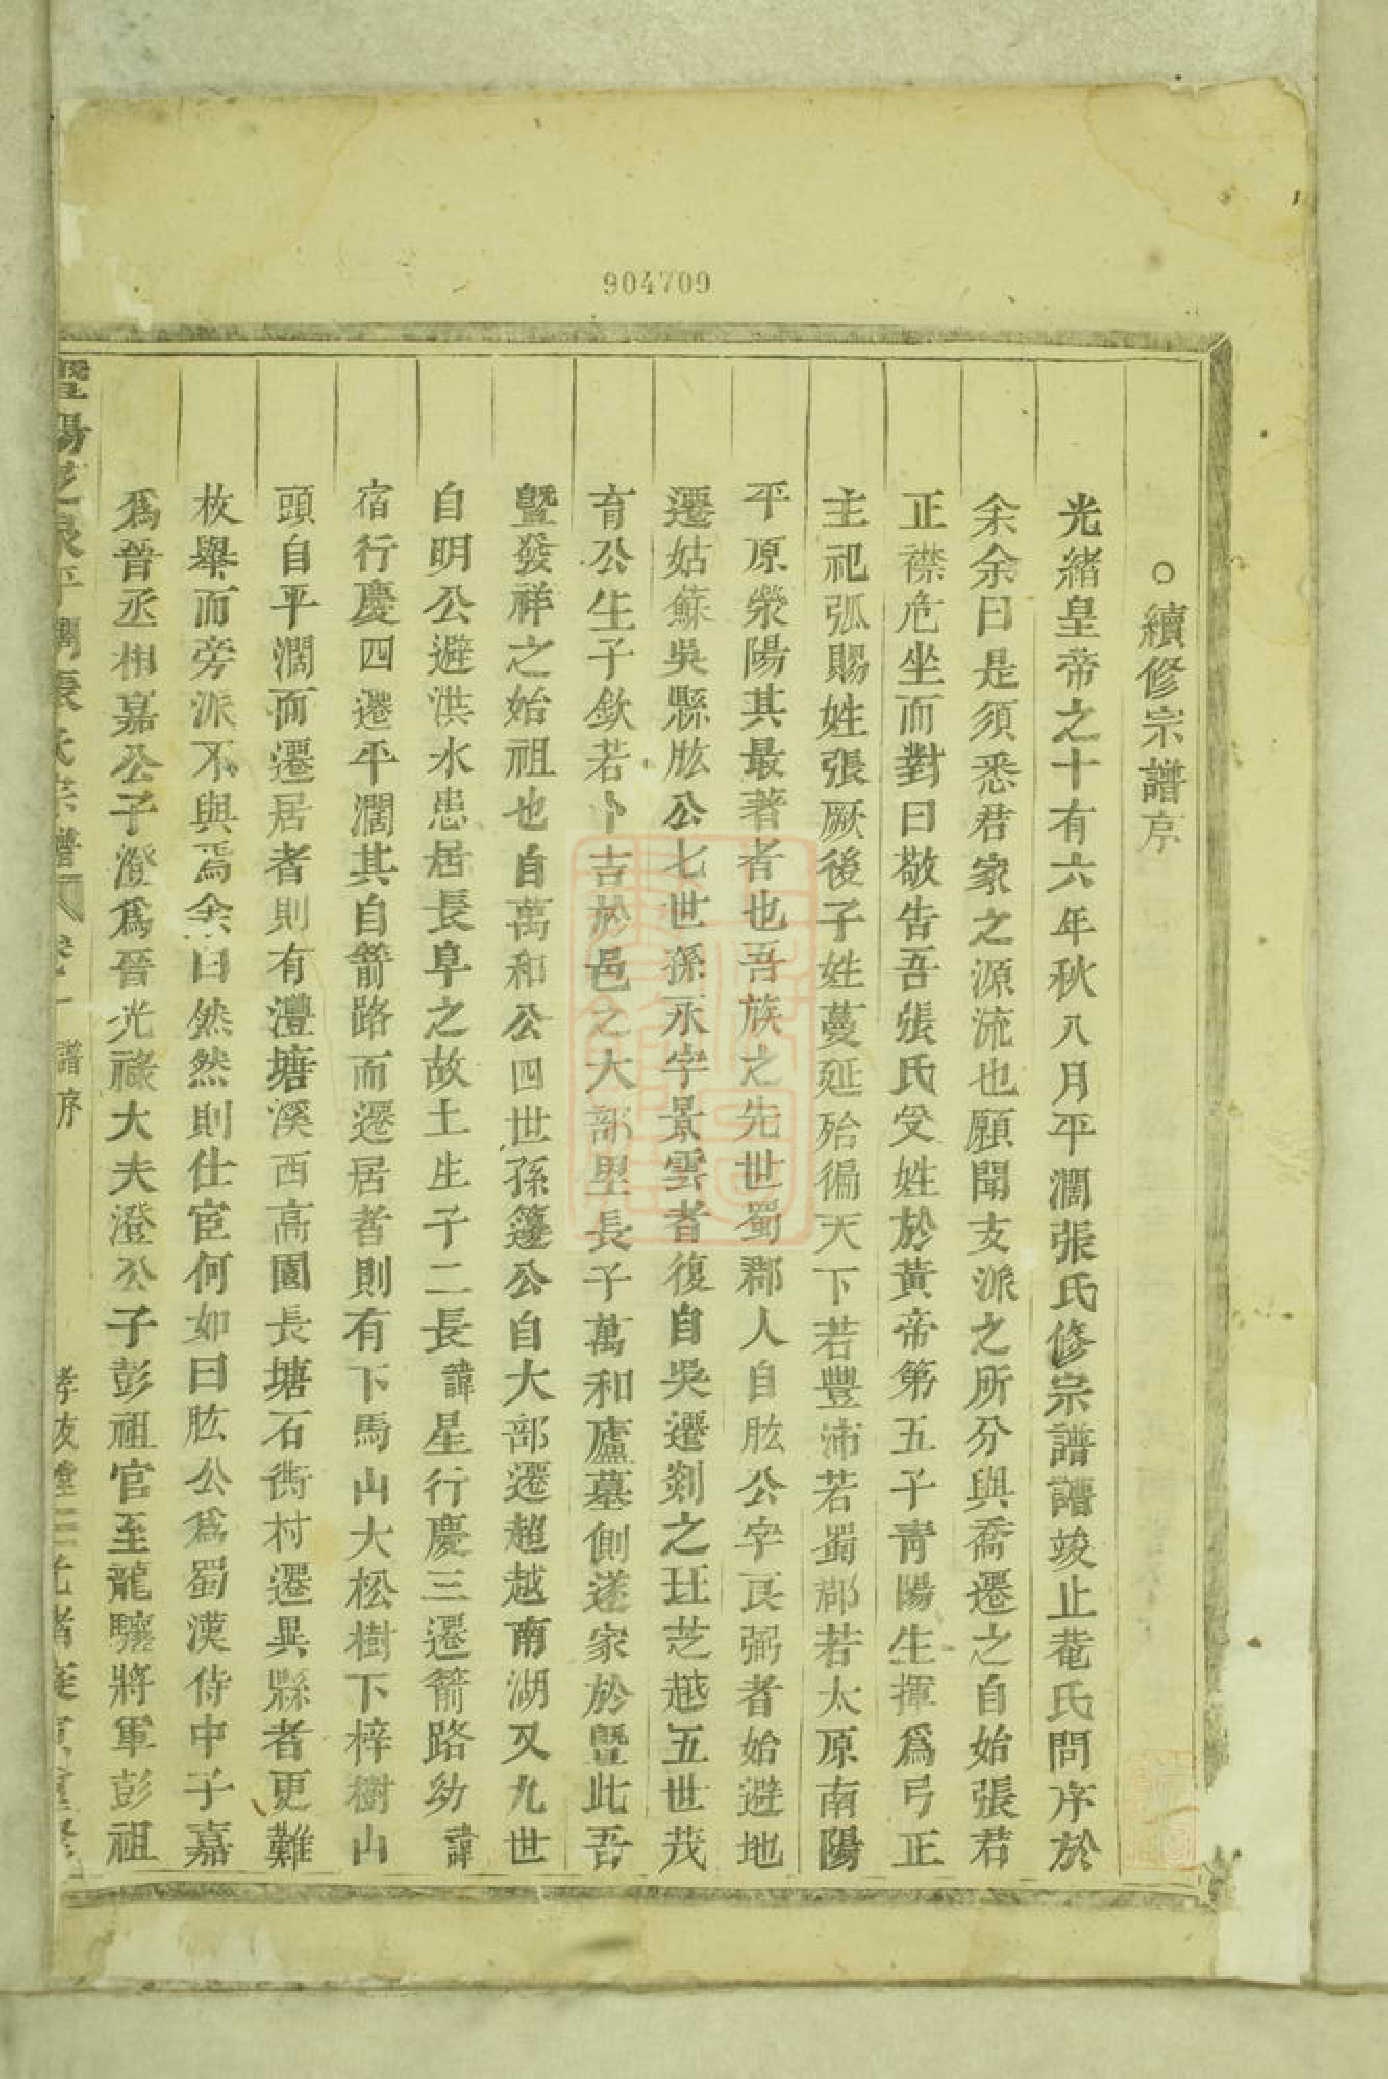 904709
○續修宗譜序
光緒皇帝之十有六年秋八月平濶張氏修宗譜譜竣止菴氏問序於
余余曰是須悉君家之源流也願聞支派之所分與喬遷之自始張君
正襟危坐而對曰敬告吾張氏受姓於黃帝第五子靑陽生揮爲弓正
主祀弧賜姓張厥後子姓蔓延殆徧天下若豐沛若蜀郡若太原南陽
平原滎陽其最著者也吾族之先世蜀郡人自肱公字良弼者始避地
遷姑蘇吳縣肱公七世孫永字景雲者復自吳遷剡之珏芝越五世茂
育公生子欽若卜吉於邑之大部里長子萬和廬墓側遂家於曁此吾
曁發祥之始祖也自萬和公四世孫籩公自大部遷超越南湖又九世
自明公避洪水患居長阜之故土生子二長諱星行慶三遷箭路幼諱
宿行慶四遷平濶其自箭路而遷居者則有下馬山大松樹下梓樹山
頭自平濶而遷居者則有灃塘溪西高園長塘石衖村遷異縣者更難
枚舉而旁派不與焉余曰然然則仕宦何如曰肱公爲蜀漢侍中子嘉
爲晉丞相嘉公子澄爲晉光祿大夫澄公子彭祖官至龍驤將軍彭祖
曁陽芝泉平濶張氏宗譜 卷一 譜序 孝友堂